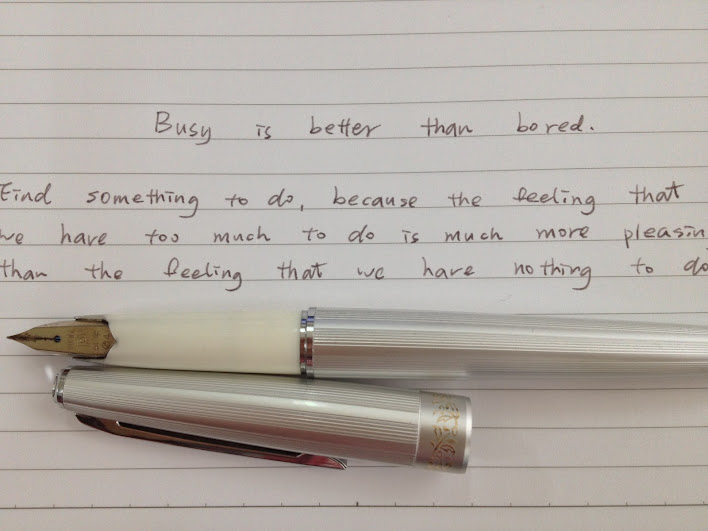 Busy is better than bored.
Find something to do, because the feeling that
we have too much to do is much more pleasing
than the feeling that we have nothing to do